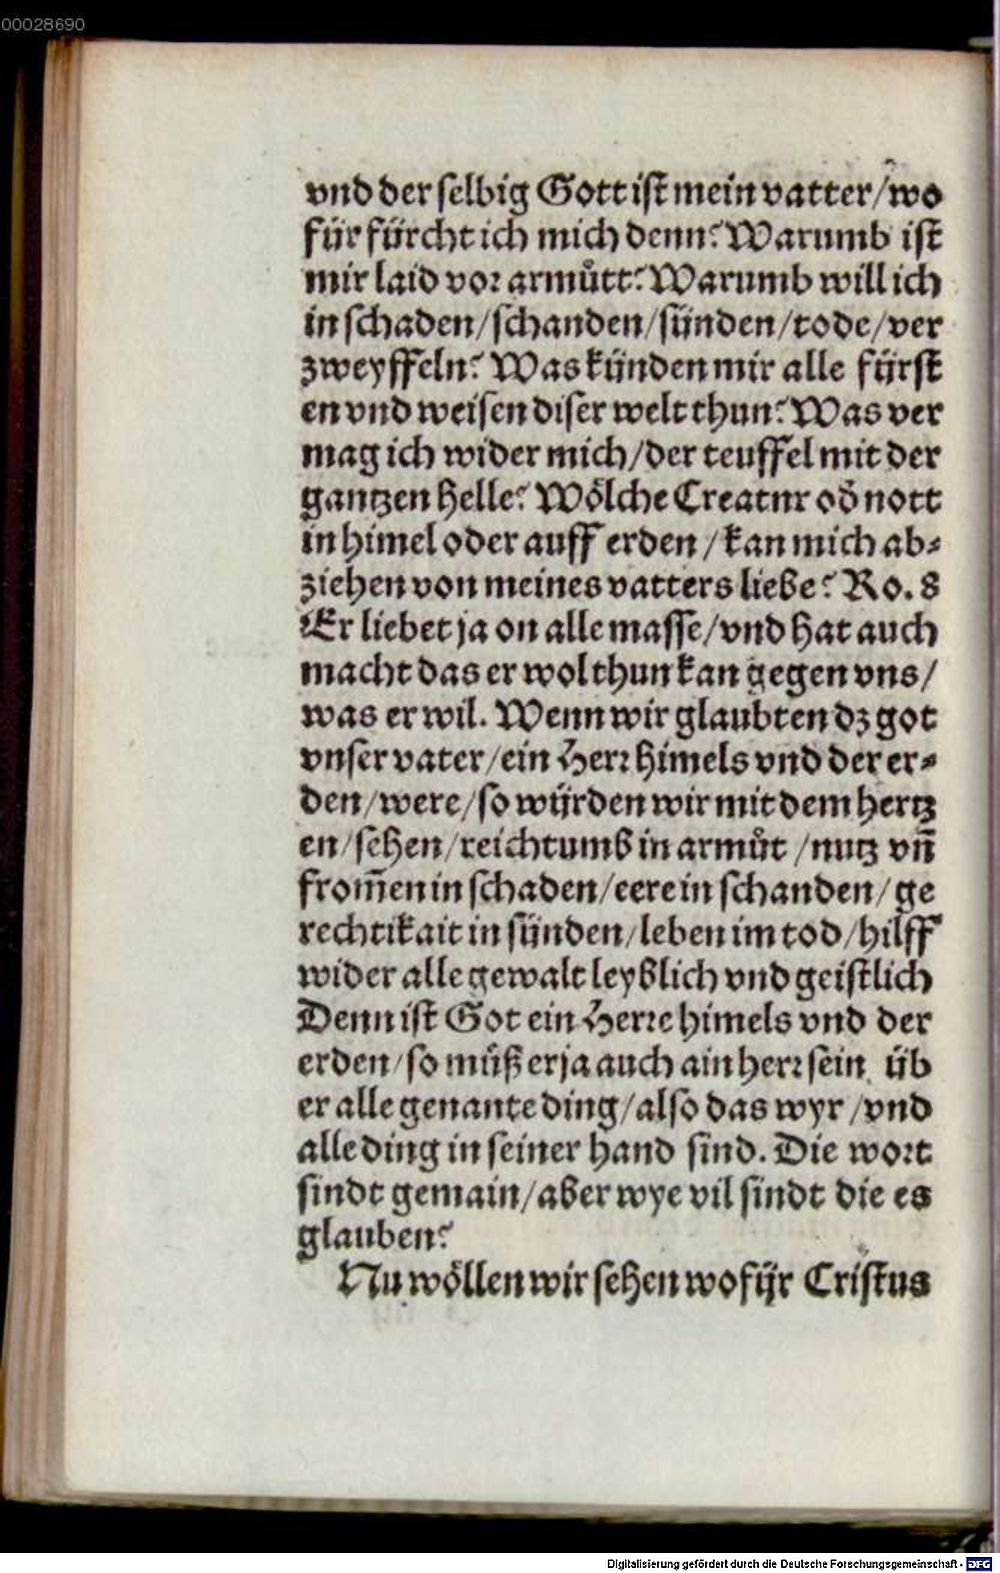 00028690
vnd der selbig Gott ist mein vatter/wo
für fürcht ich mich denn? Warumb ist
mir laid vor armůtt? Warumb will ich
in schaden/schanden/sünden/tode/ver
zweyffeln? Was künden mir alle fürst
en vnd weisen diser welt thun? Was ver
mag ich wider mich/der teuffel mit der
gantzen helle? Wölche Creatnr od̕ nott
in himel oder auff erden/kan mich ab⸗
ziehen von meines vatters liebe? Ro. 8
Er liebet ja on alle masse/vnd hat auch
macht das er wol thun kan gegen vns/
was er wil. Wenn wir glaubten dz got
vnser vater/ein Herr himels vnd der er⸗
den/were/so würden wir mit dem hertz
en/sehen/reichtumb in armůt/nutz vñ
from̃en in schaden/eere in schanden/ge
rechtikait in sünden/leben im tod/hilff
wider alle gewalt leyblich vnd geistlich
Denn ist Got ein Herre himels vnd der
erden/so müß er ja auch ain herr sein üb
er alle genante ding/also das wyr/vnd
alle ding in seiner hand sind. Die wort
sindt gemain/aber wye vil sindt die es
glauben?
Nu wöllen wir sehen wofür Cristus
Digitalisierung gefördert durch die Deutsche Forschungsgemeinschaft - DFG